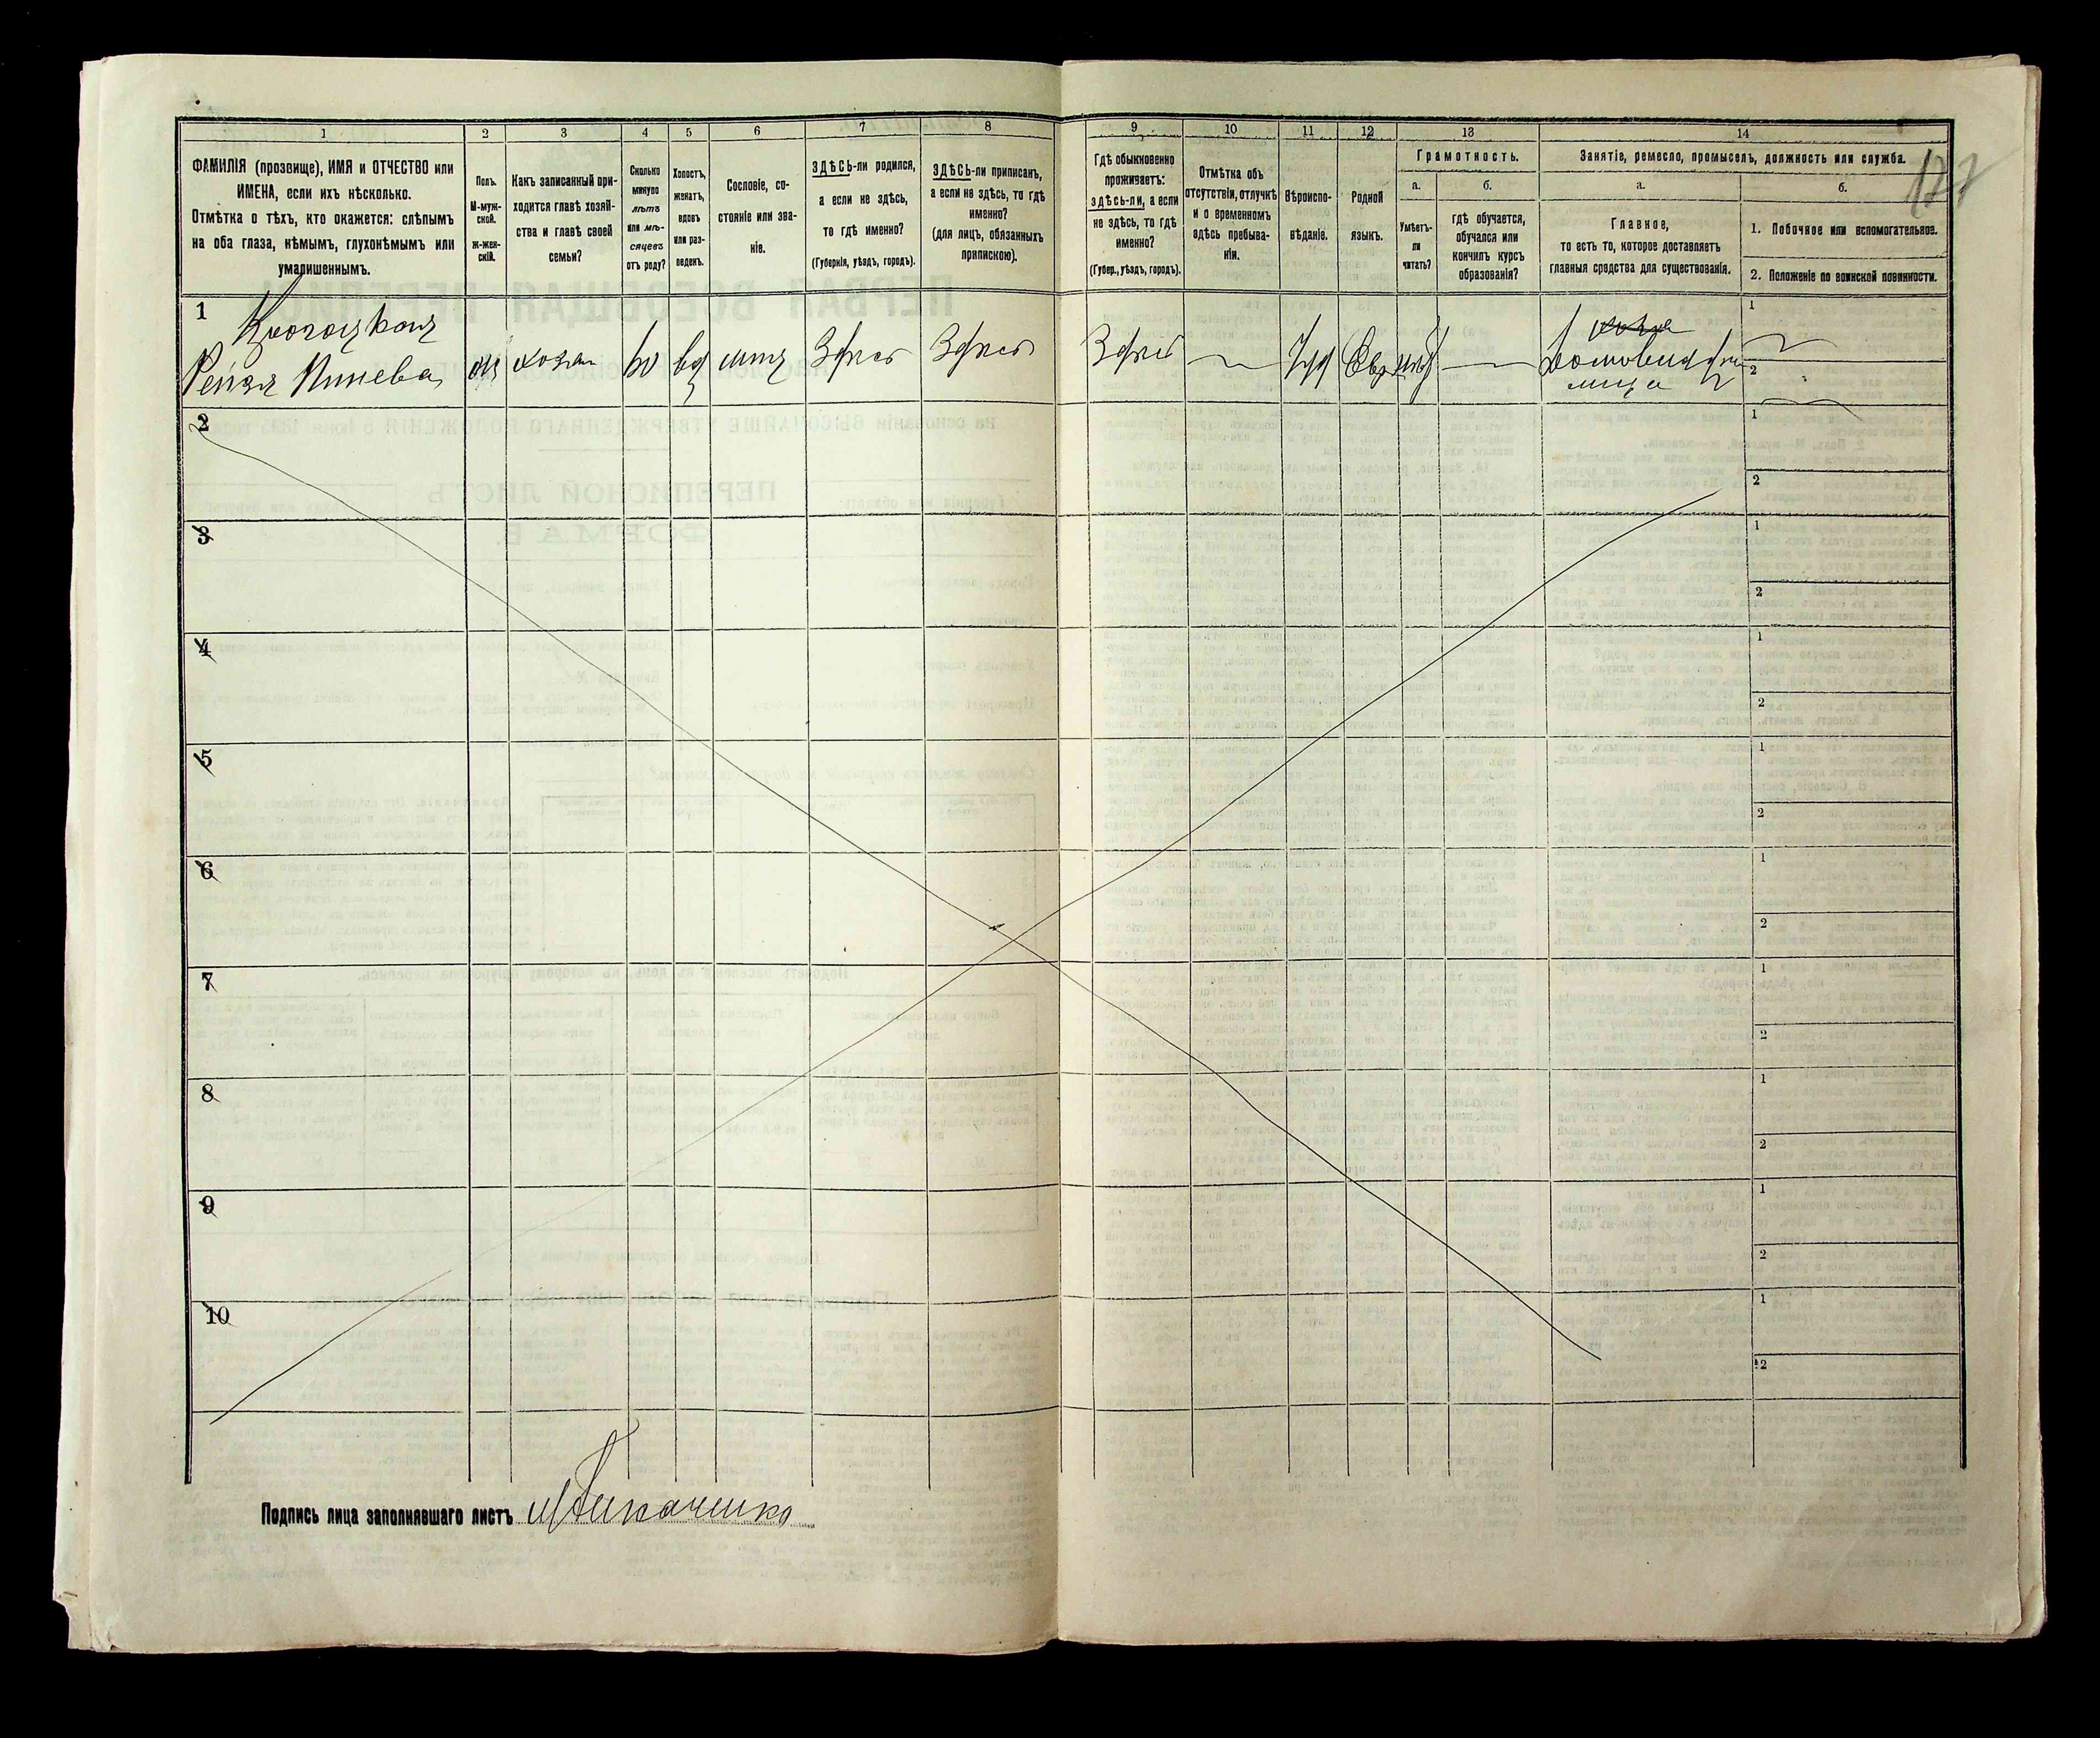 1 2 3 4 5 6 7 8 9 10 11 12 13 14
ФАМИЛІЯ (прозвище), ИМЯ и ОТЧЕСТВО или
ИМЕНА, если ихъ нѣсколько.
Отмѣтка о тѣхъ, кто окажется: слѣпымъ
на оба глаза, нѣмымъ, глухонѣмымъ или
умалишеннымъ.
Полъ.
М-муж-
ской.
Ж-жен-
скій.
Какъ записанный при-
ходится главѣ хозяй-
ства и главѣ своей
семьи?
Сколько
минуло
лѣтъ
или мѣ-
сяцевъ
отъ роду?
Холостъ,
женатъ,
вдовъ
или раз-
веденъ.
Сословіе, со-
стояніе или зва-
ніе.
ЗДѢСЬ-ли родился,
а если не здѣсь,
то гдѣ именно?
(Губернія, уѣздъ, городъ).
ЗДѢСЬ-ли приписанъ,
а если не здѣсь, то гдѣ
именно?
(для лицъ, обязанныхъ
припискою).
Гдѣ обыкновенно
проживаетъ:
здѣсь-ли, а если
не здѣсь, то гдѣ
именно?
(Губер., уѣздъ, городъ).
Отмѣтка объ
отсутствіи, отлучкѣ
и о временномъ
здѣсь пребыва-
ніи.
Вѣроиспо-
вѣданіе.
Родной
языкъ.
Грамотность.
а.
Умѣетъ-
ли
читать?
б.
гдѣ обучается,
обучался или
кончилъ курсъ
образованія?
Занятіе, ремесло, промыселъ, должность или служба.
а.
Главное,
то есть то, которое доставляетъ
главныя средства для существованія.
б.
1. Побочное или вспомогательное.
2. Положеніе по воинской повинности.
177
1
Рейзя
хозяи
60
вд
Здѣсь Здѣсь Здѣсь
Іуд Евр нѣт
1
2
2
1
2
3
1
2
4
1
2
5
1
2
6
1
2
7
1
2
8
1
2
9
1
2
10
1
2
Подпись лица заполнявшаго листъ